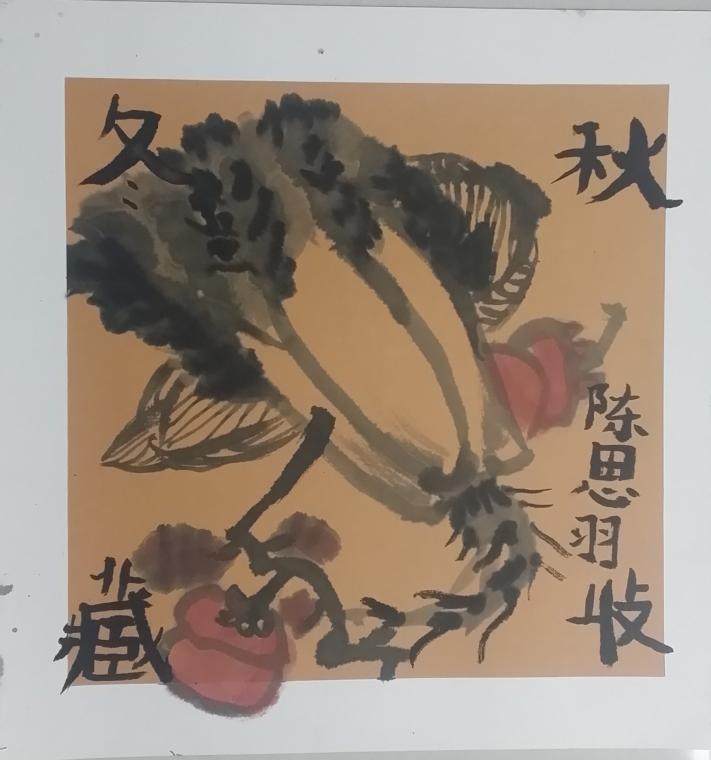 秋
收
冬
藏
陈思羽